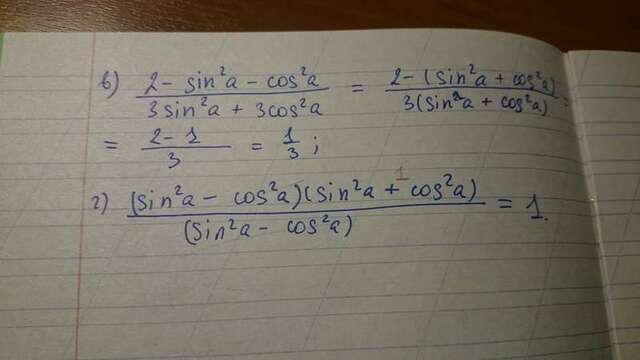 в) (2 - sin²a - cos²a)/(3sin²a + 3cos²a) = (2 - (sin²a + cos²a))/(3(sin²a + cos²a)) =
= (2 - 1)/3 = 1/3 ;
1
г) ((sin²a - cos²a)(sin²a + cos²a))/((sin²a - cos²a)) = 1.